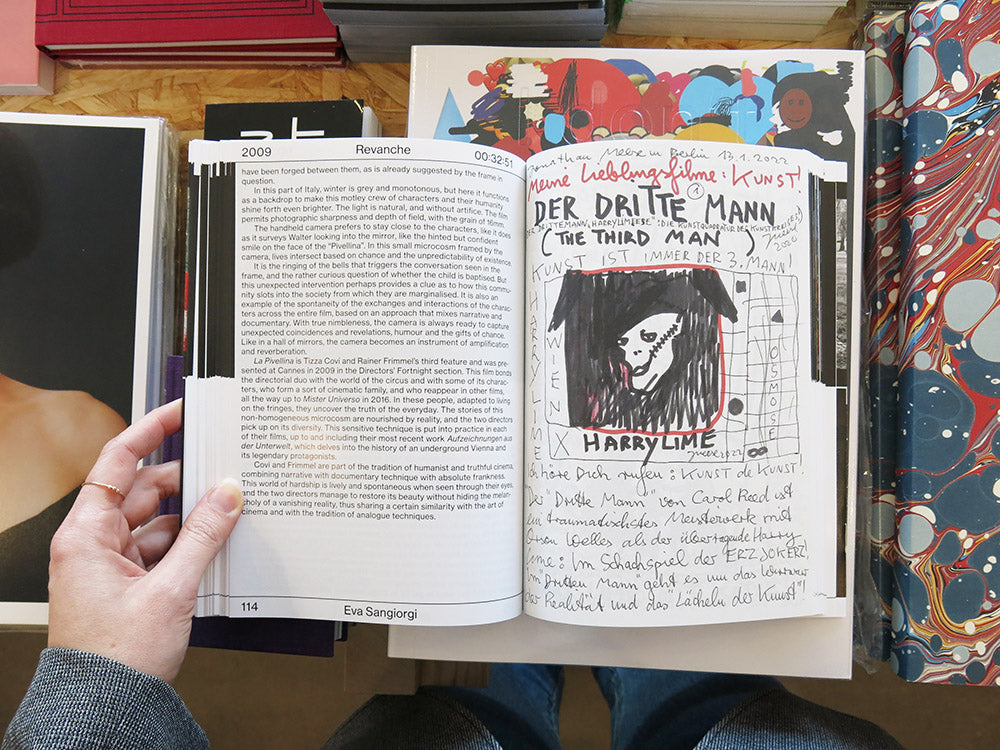 2009 Revanche 00:32:51
have been forged between them, as is already suggested by the frame in
question.
In this part of Italy, winter is grey and monotonous, but here it functions
as a backdrop to make this motley crew of characters and their humanity
shine forth even brighter. The light is natural, and without artifice. The film
permits photographic sharpness and depth of field, with the grain of 16mm.
The handheld camera prefers to stay close to the characters, like it does
as it surveys Walter looking into the mirror, like the hinted but confident
smile on the face of the “Pivellina”. In this small microcosm framed by the
camera, lives intersect based on chance and the unpredictability of existence.
It is the ringing of the bells that triggers the conversation seen in the
frame, and the rather curious question of whether the child is baptised. But
this unexpected intervention perhaps provides a clue as to how this commu-
nity slots into the society from which they are marginalised. It is also an
example of the spontaneity of the exchanges and interactions of the charac-
ters across the entire film, based on an approach that mixes narrative and
documentary. With true nimbleness, the camera is always ready to capture
unexpected coincidences and revelations, humour and the gifts of chance.
Like in a hall of mirrors, the camera becomes an instrument of amplification
and reverberation.
La Pivellina is Tizza Covi and Rainer Frimmel’s third feature and was pre-
sented at Cannes in 2009 in the Directors’ Fortnight section. This film bonds
the directorial duo with the world of the circus and with some of its charac-
ters, who form a sort of cinematic family, and who reappear in other films,
all the way up to Mister Universo in 2016. In these people, adapted to living
on the fringes, they uncover the truth of the everyday. The stories of this
non-homogeneous microcosm are nourished by reality, and the two directors
pick up on its diversity. This sensitive technique is put into practice in each
of their films, up to and including their most recent work Aufzeichnungen aus
der Unterwelt, which delves into the history of an underground Vienna and
its legendary protagonists.
Covi and Frimmel are part of the tradition of humanist and truthful cinema,
combining narrative with documentary technique with absolute frankness.
This world of hardship is lively and spontaneous when seen through their eyes,
and the two directors manage to restore its beauty without hiding the melan-
choly of a vanishing reality, thus sharing a certain similarity with the art of
cinema and with the tradition of analogue techniques.
114 Eva Sangiorgi
Jonathan Meese in Berlin 13.1.2022
Meine Lieblingsfilme: KUNST!
1
DER DRITTE MANN
(THE THIRD MAN)
2020
KUNST IST IMMER DER 3. MANN!
HARRYLIME
WIEN
X
OSMOSE
HARRYLIME
Ich höre Dich rufen: KUNST de KUNST!
Der "Dritte Mann" von Carol Reed ist
ein traumatischstes Meisterwerk mit
Orson Welles als der überragende Harry
Lime: Im Schachspiel der ERZJOKERZ!
Im "Dritten Mann" geht es um das
der Realität und das "Lächeln der Kunst"!